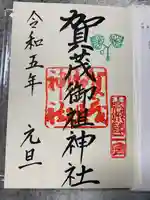 賀茂御祖神社
令和五年 元旦